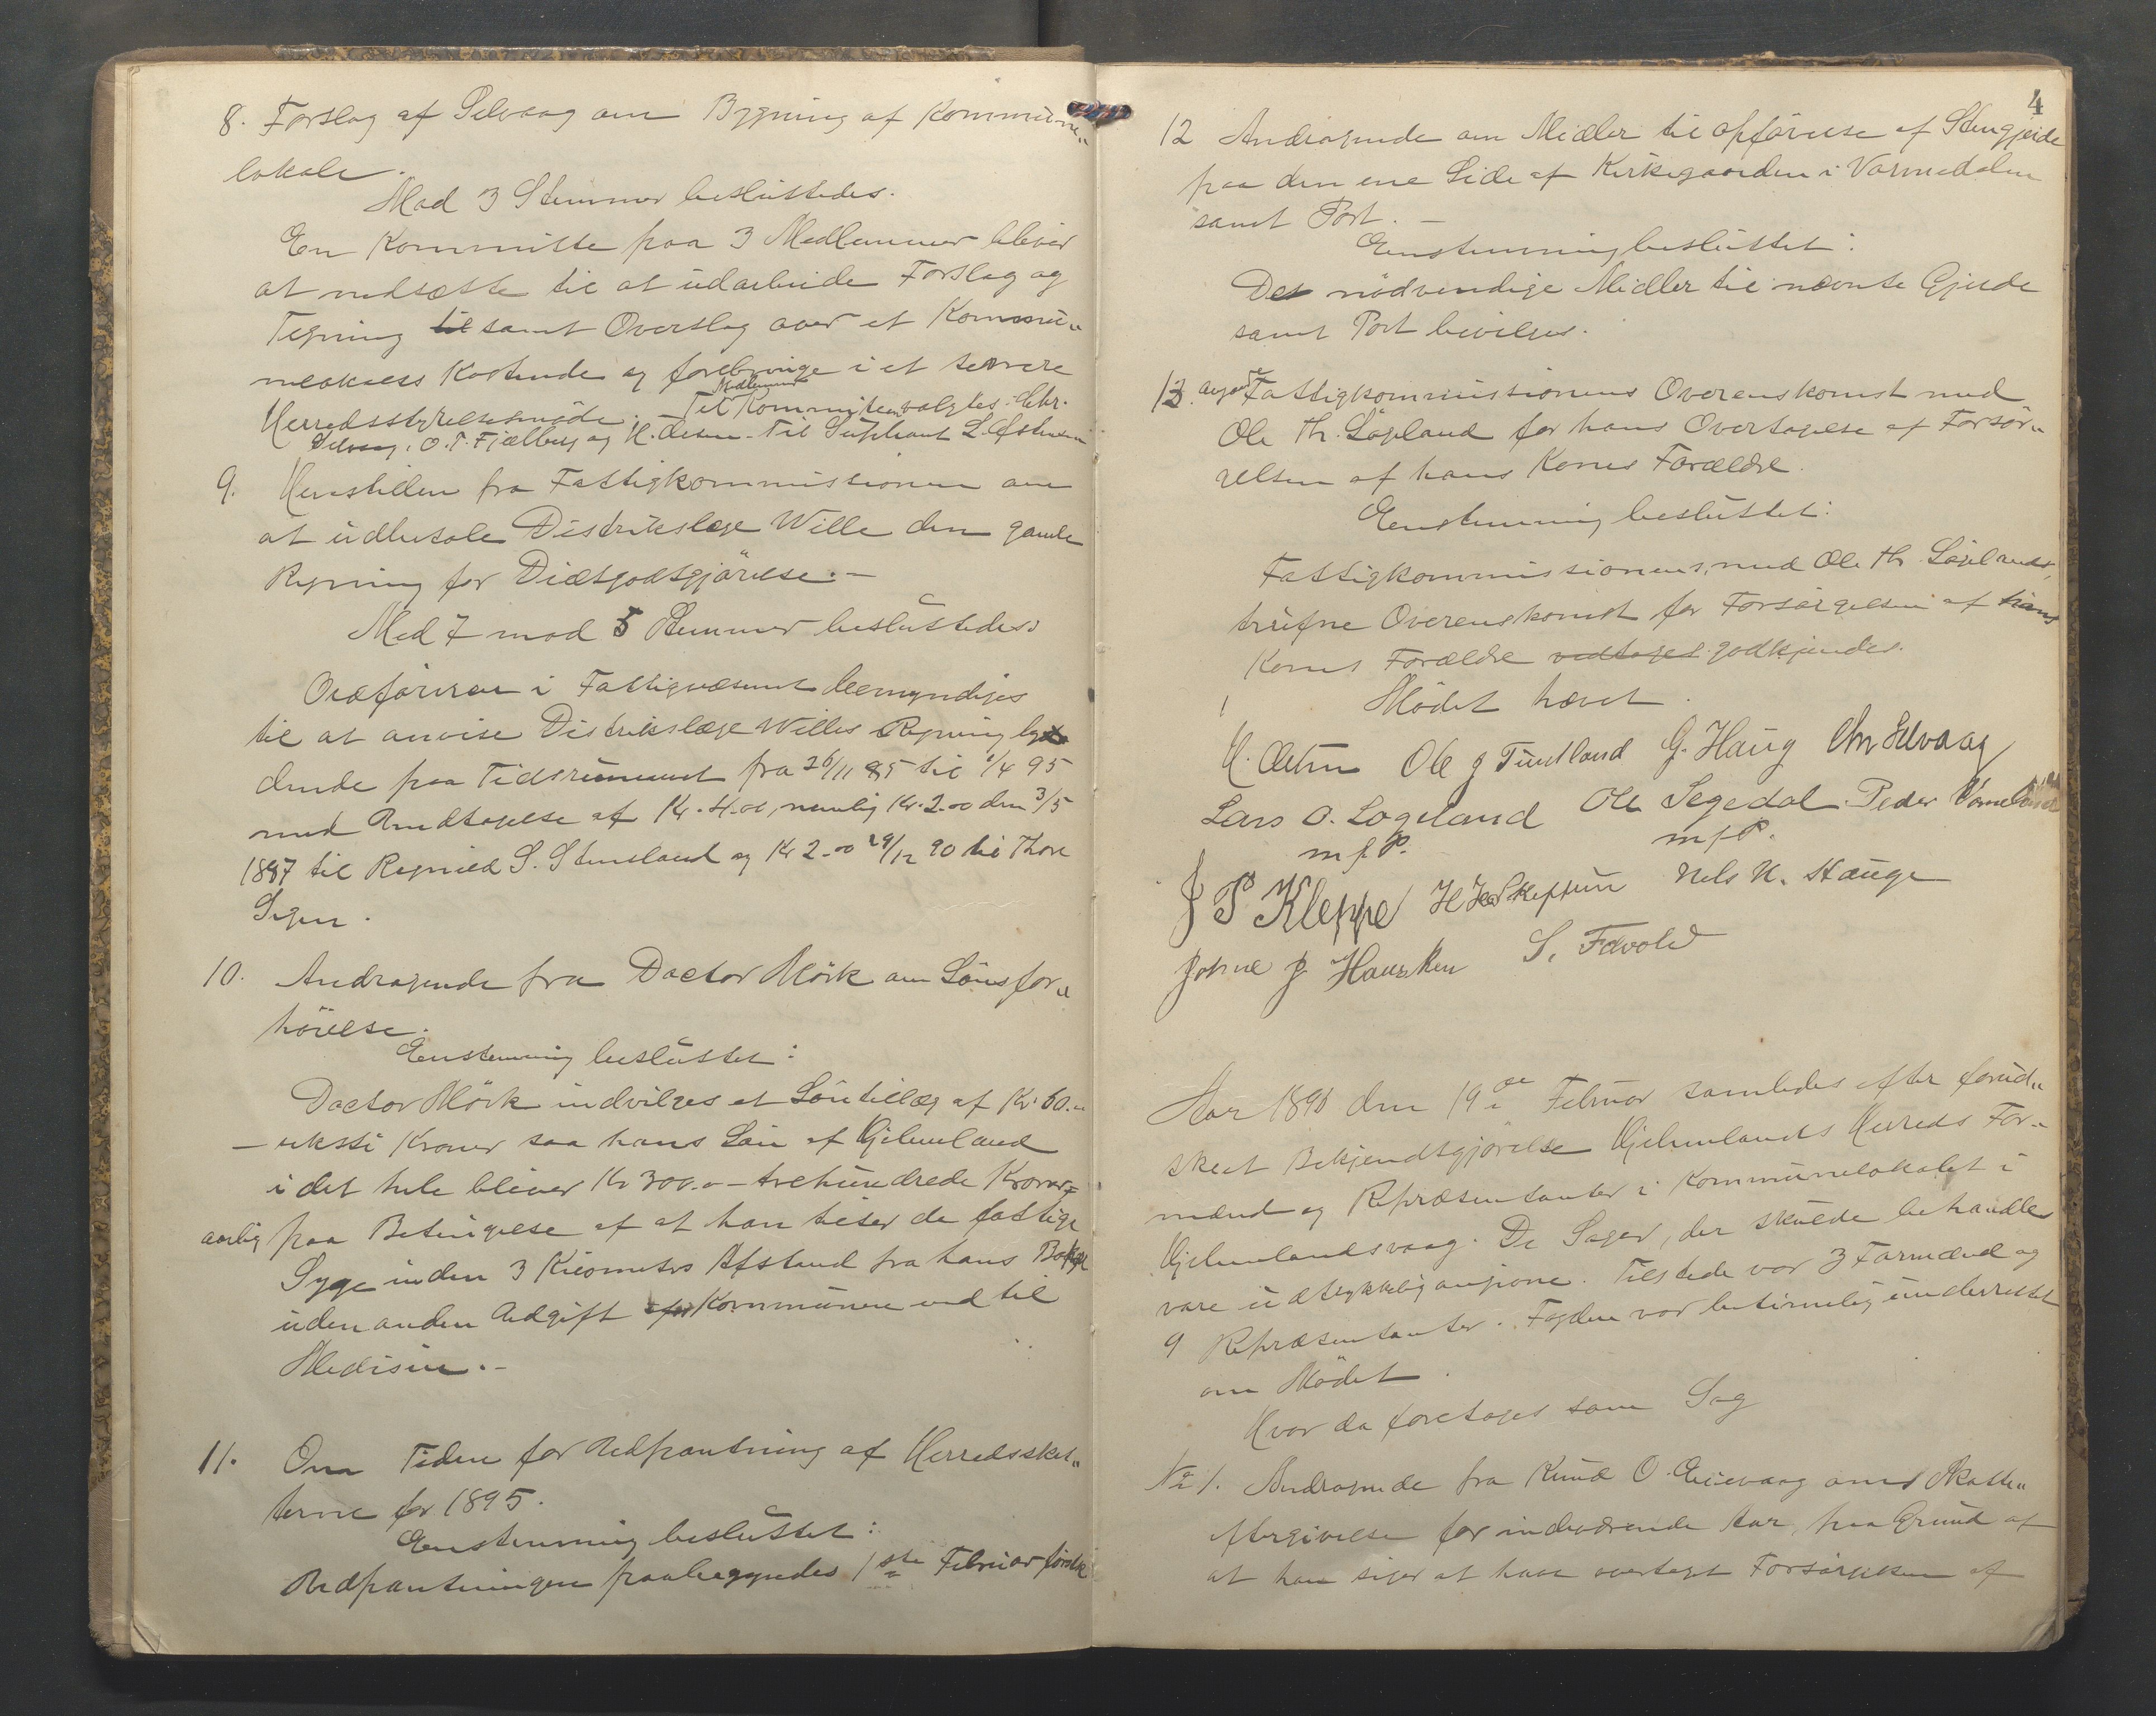 8. Forslag af Selvaag om Bygning af Kommune„
lokale.
Mod 3 Stemmer besluttedes.
En Kommitte paa 3 Medlemmer bliver
at nedsætte til at udarbeide Forslag og
Tegning til samt Overslag over et Kommu„
nelokales Kostende og forebringe i et senere
Herredsstyrelsesmöde. Til Medlemmer Kommiteen valgtes: Chr.
Selvaag, O. T. Fjælberg og H. Oesen. Til Suppleant L.
9. Henstillen fra Fattigkommissionen om
at udbetale Distrikslæge Wille den gamle
Regning for Diætgodtgjörelse. –
Med 7 mod 5 Stemmer besluttedes:
Ordföreren i Fattigvæsenet bemyndiges
til at anvise Distrikslæge Willes Regning ly
dende paa Tidsrummet fra 26/11 85 til 1/4 95
med Undtagelse af Kr. 4.00, nemlig Kr. 2.00 den 3/5
1887 til Regnild S. Stensland og Kr 2.00 29/12 90 til Thore
Segen.
10. Andragende fra Doctor Mörk om Lönsfor„
höielse.
Eenstemmig besluttet:
Doctor Mörk indvilges et Löntillæg af Kr. 60.
– seksti Kroner saa hans Lön af Hjelmeland
i det hele bliver Kr 300.00 – trehundrede Kroner –
aarlig paa Betingelse af at han tilser de fattige
Syge inden 3 Kilometers Afstand fra hans Bopæl
uden anden Udgift af Kommunen end til
Medisin. –
11. Om Tiden for Udpantning af Herredsskat„
terne for 1895.
Eenstemmig besluttet:
Udpantningen paabegyndes 1ste Februar förstk
4
12 Andragende om Midler til opförelse af Stengjerde
paa den ene Side af Kirkegaarden i Vormedalen
samt Port. –
Eenstemmig besluttet:
De nödvendige Midler til nævnte Gjerde
samt Port bevilges.
13. Fattigkommissionens Overenskomst med
Ole Th. Lögeland for hans Overtagelse af Forsör„
gelsen af hans Kones Forældre.
Eenstemmig besluttet:
Fattigkommissionens, med Ole Th. Lögeland,
trufne Overenskomst for Forsörgelsen af hans
Kones Forældre vedtages godkjendes.
Mödet hævet.
H. Oesen Ole J Tuntland G. Haug Chr Selvaag
Lars O. Lögeland Ole Segedal Peder
m. f. P. m f P.
J P Kleppe Nels N. Hauge
Johne J. Hausken S.
Aar 1896 den 19de Februar samledes efter forud„
skeet Bekjendtgjörelse Hjelmelands Herreds For„
mænd og Repræsentanter i Kommunelokalet i
Hjelmelandsvaag. De Sager, der skulde behandles
vare udtrykkelig angivne. Tilstede var 3 Formænd og
9 Repræsentanter. Fogden var betimelig underrettet
om Mödet.
Hvor da foretages som Sag
No 1. Andragende fra Knud O. Eiievaag om Skatte„
eftergivelse for indeværende Aar, paa Grund af
at han siger at have overtaget Forsörgelsen af